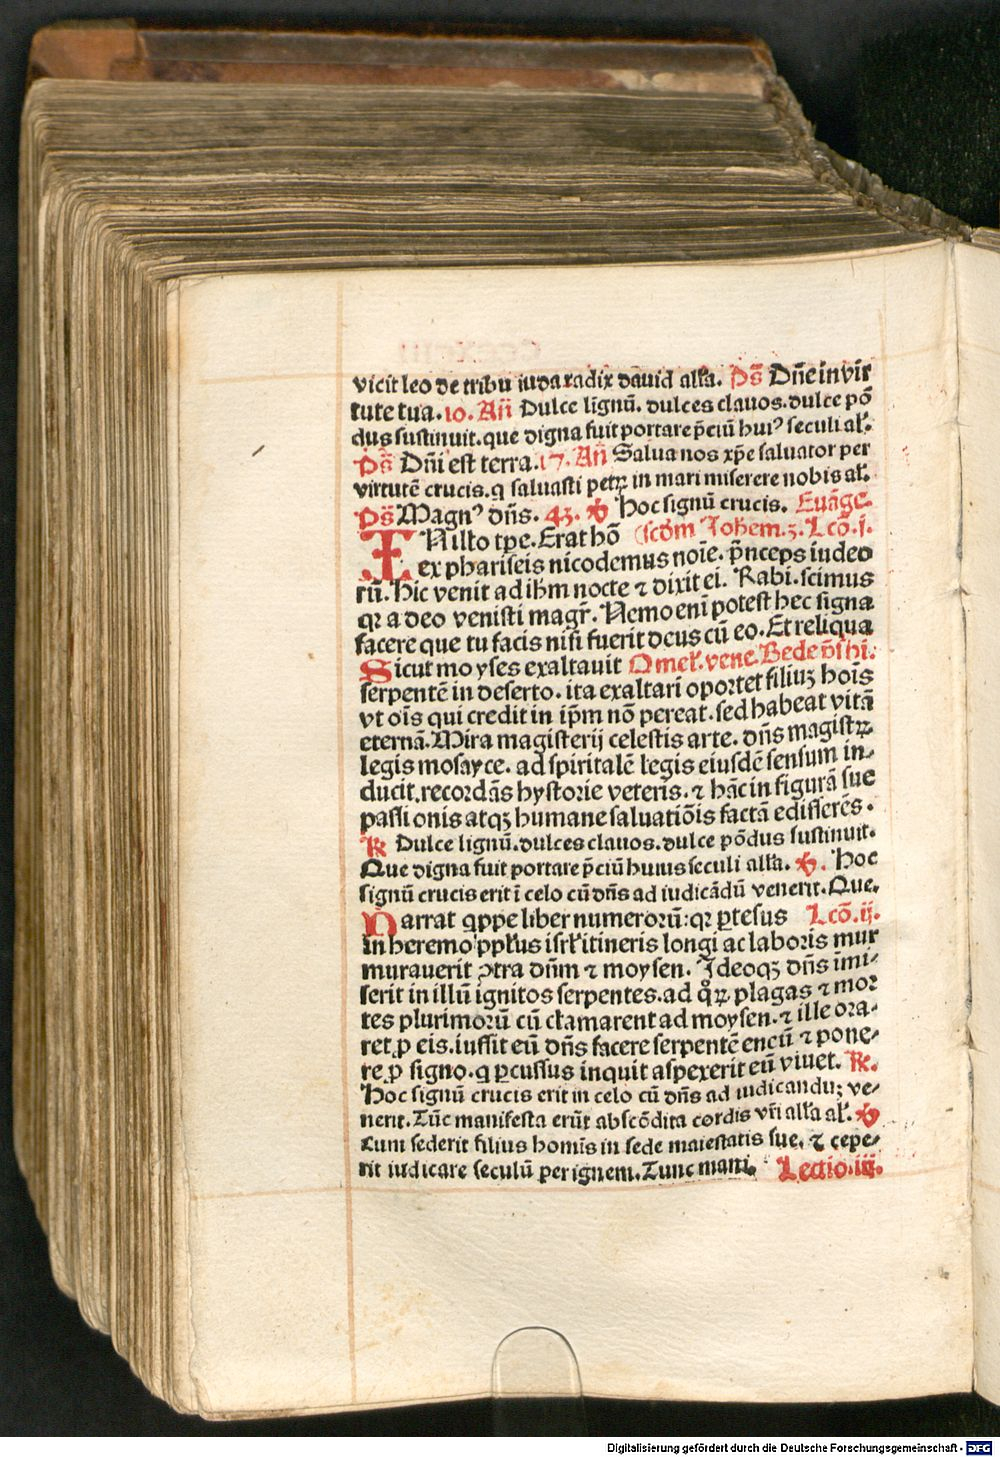 vicit leo de tribu iuda radix dauid all'a. Ps̄ Dn̄e in vir
tute tua. 10. An̄ Dulce lignū. dulces clauos. dulce pō
dus sustinuit. que digna fuit portare p̄ciū huiꝰ seculi al'.
Ps̄ Dn̄i est terra. 17. An̄ Salua nos xp̄e saluator per
virtutē crucis. q saluasti petrꝝ in mari miserere nobis al'.
Ps̄ Magnꝰ dn̄s. 43. ℣ Hoc signū crucis. Euāge.
IN illo tꝑe. Erat hō scd̄m Joh̄em. 3. Lcō. j.
ex phariseis nicodemus noīe. p̄nceps iudeo
rū. Hic venit ad ih̄m nocte ⁊ dixit ei. Rabi. scimus
qꝛ a deo venisti magr̄. Nemo enī potest hec signa
facere que tu facis nisi fuerit deus cū eo. Et reliqua
Sicut moyses exaltauit Omel'. vene. Bede p̄sb̄i.
serpentē in deserto. ita exaltari oportet filiuꝫ hoīs
vt oīs qui credit in ip̄m nō pereat. sed habeat vitā
eternā. Mira magisterij celestis arte. dn̄s magistꝝ
legis mosayce. ad spiritalē legis eiusdē sensum in-
ducit. recordās hystorie veteris. ⁊ hāc in figurā sue
passionis atqꝫ humane saluatiōis factā edisserēs.
℟ Dulce lignū. dulces clauos. dulce pōdus sustinuit.
Que digna fuit portare p̄ciū huius seculi all'a. ℣. Hoc
signū crucis erit ī celo cū dn̄s ad iudicādū venerit. Que.
Narrat qꝓpe liber numerorū: qꝛ ꝑtesus Lcō. ij.
in heremo ppl'us isrl' itineris longi ac laboris mur
murauerit ꝯtra dn̄m ⁊ moysen. Ideoqꝫ dn̄s īmi-
serit in illū ignitos serpentes. ad qͦꝝ plagas ⁊ mor
tes plurimorū cū clamarent ad moysen. ⁊ ille ora-
ret ꝓ eis. iussit eū dn̄s facere serpentē eneū ⁊ pone-
re ꝓ signo. q ꝑcussus inquit aspexerit eū viuet. ℟.
Hoc signū crucis erit in celo cū dn̄s ad iudicanduꝫ ve-
nerit. Tūc manifesta erūt abscōdita cordis vr̄i all'a al'. ℣
Cum sederit filius homīs in sede maiestatis sue. ⁊ cepe-
rit iudicare seculū per ignem. Tunc mani. Lectio. iij.
Digitalisierung gefördert durch die Deutsche Forschungsgemeinschaft - DFG